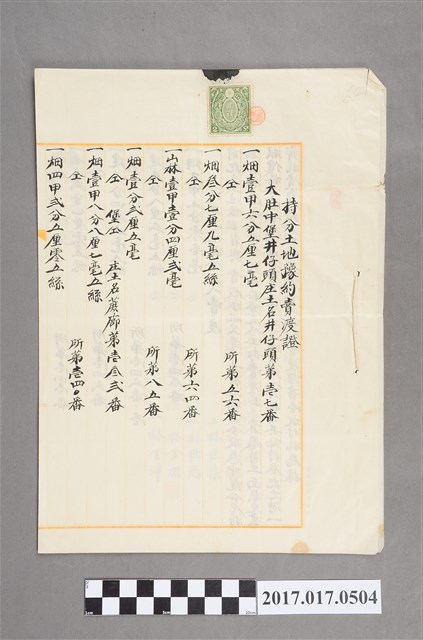 持分土地豫約賣渡證
大肚中堡井仔頭庄土名井仔頭第壹七番
一畑壹甲六分五厘七毫
仝 所第五六番
一畑叁分七厘九毫五絲
仝 所第六四番
一山林壹甲壹分四厘貳毫
仝 所第八五番
一畑壹分貳厘五毫
仝 堡仝 庄土名蔗廍第壹叁貳番
一畑壹甲八分八厘七毫五絲
仝 所第壹四〇番
一畑四甲貳分五厘零五絲
2017.017.0504